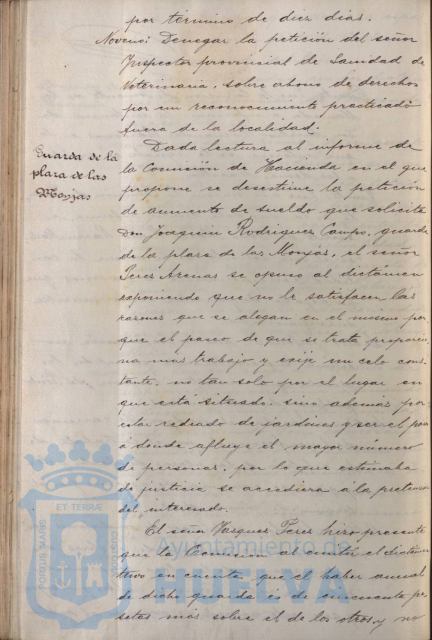 por término de diez días.
Noveno: Denegar la petición del señor
Inspector provincial de Sanidad de
Veterinaria, sobre abono de derechos
por un reconocimiento practicado
fuera de la localidad.
Guarda de la
plaza de las
Monjas
Dada lectura al informe de
la Comisión de Hacienda en el que
propone se desestime la petición
de aumento de sueldo que solicita
Don Joaquin Rodriguez Campo, guarda
de la plaza de las Monjas, el señor
Perez Arenas se opuso al dictámen
exponiendo que no le satisfacen las
razones que se alegan en el mismo por
que el paseo de que se trata proporcio
na mas trabajo y exije un celo cons-
tante, no tan solo por el lugar en
que está situado, sino además por
estar rodeado de jardines y ser el
á donde afluye el mayor número
de personas, por lo que estimaba
de justicia se accediera á la pretension
del interesado.
El señor Vazquez Perez hizo presente
que la Comisión al emitir el dictamen
tuvo en cuenta que el haber anual
de dicho guarda es de cincuenta pe
setas más sobre el de los otros, y no
PORTUS MARIS ET TERRÆ CUSTODIA
Ayuntamiento de
HUELVA